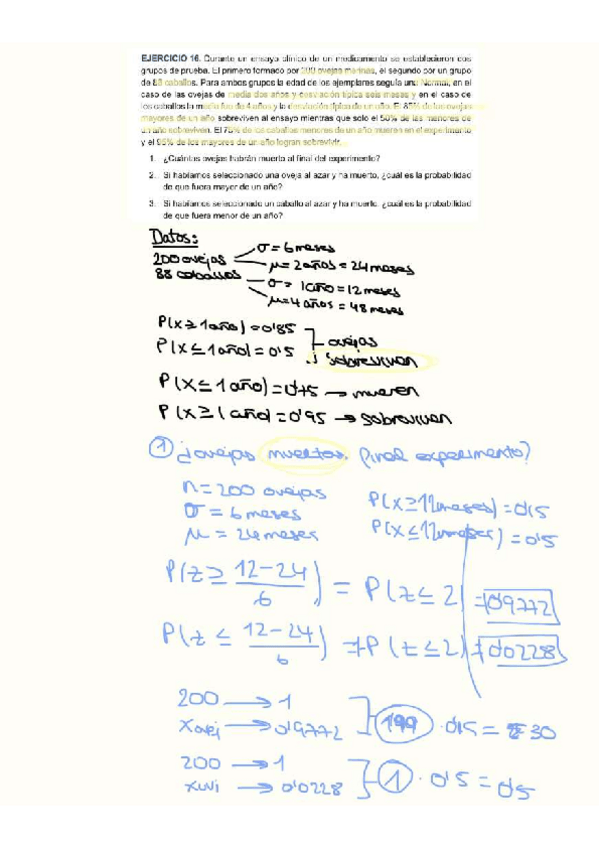 EJERCICIO 16. Durante un ensayo clínico de un medicamento se establecieron dos
grupos de prueba. El primero formado por 200 ovejas merinas, el segundo por un grupo
de 88 caballos. Para ambos grupos la edad de los ejemplares seguía una Normal, en el
caso de las ovejas de media dos años y desviación típica seis meses y en el caso de
los caballos la media fue de 4 años y la desviación típica de un año. El 85% de las ovejas
mayores de un año sobreviven al ensayo mientras que solo el 50% de las menores de
un año sobreviven. El 75% de los caballos menores de un año mueren en el experimento
y el 95% de los mayores de un año logran sobrevivir.
1. ¿Cuántas ovejas habrán muerto al final del experimento?
2. Si hubiéramos seleccionado una oveja al azar y ha muerto, ¿cuál es la probabilidad
de que fuera mayor de un año?
3. Si hubiéramos seleccionado un caballo al azar y ha muerto, ¿cuál es la probabilidad
de que fuera menor de un año?
Datos:
200 ovejas σ = 6 meses
μ = 2 años = 24 meses
88 caballos σ = 1 año = 12 meses
μ = 4 años = 48 meses
P(X ≥ 1 año) = 0'85
P(X ≤ 1 año) = 0'5 ovejas sobreviven
P(X ≤ 1 año) = 0'75 → mueren
P(X ≥ 1 año) = 0'95 → sobreviven
① ¿ovejas muertas final experimento?
n = 200 ovejas
σ = 6 meses
μ = 24 meses
P(X ≥ 12 meses) = 0'15
P(X ≤ 12 meses) = 0'5
P(z ≥ 12-24/6) = P(z ≤ 2) = 0'9772
P(z ≤ 12-24/6) = 1-P(z ≤ 2) = 0'0228
200 → 1
xovej → 0'9772 199 · 0'15 = 30
200 → 1
→ 0'0228 1 · 0'5 = 0'5